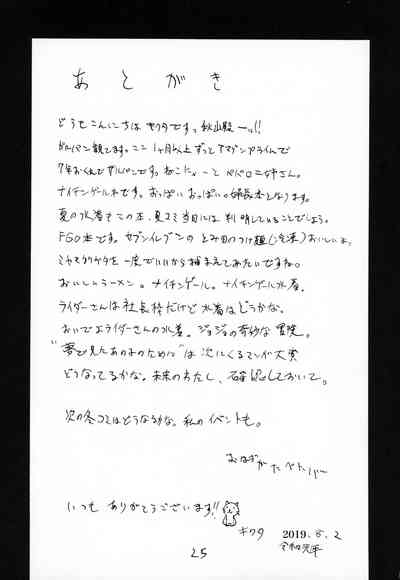 あとがき
どうもこんにちは キクタです。秋山殿ーッ!!
ガルパン観てます。ここ1ヶ月以上ずっとアマゾンプライムで
7年おくれでガルパンです。ねこにゃーと ぺパロニ姉さん。
ナイチンゲール本です。おっぱいおっぱい。婦長本となります。
夏の水着もこの本、夏コミ当日には判明していることでしょう。
FGO本です。セブンイレブンの とみ田のつけ麺(冷凍)おいしいよ。
ミヤマクワガタを一度でいいから捕まえてみたいですね。
おいしいラーメン。ナイチンゲール。ナイチンゲール水着。
ライダーさんは社長枠だけど水着はどうかな。
おいでよライダーさんの水着。ジョジョの奇妙な冒険。
"夢で見たあの子のために"は次にくるマンガ大賞
どうなってるかな。未来のわたし、確認しておいて。
次の冬コミはどうなるかな。私のイベントも。
いつも ありがとうございます!!
キクタ
2019.8.2
令和元年
25